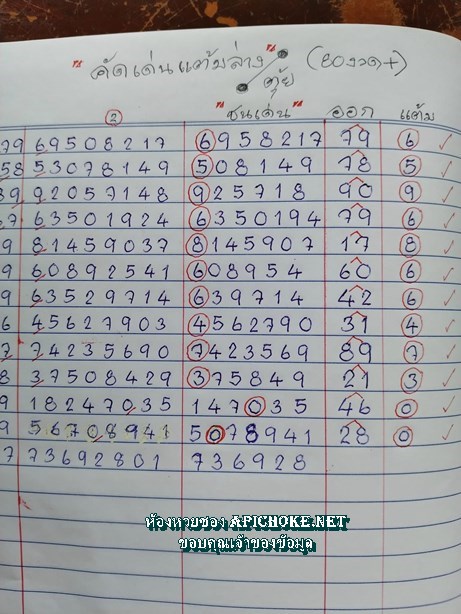 "คัดเด่นแต้มล่าง" ตุ้ย (80งวด+)
② "ชนเด่น" ออก แต้ม
79 69508217 6958217 79 6 ✓
58 53078149 508149 78 5 ✓
39 92057148 925718 90 9 ✓
67 63501924 6350194 79 6 ✓
9 81459037 8145907 17 8 ✓
9 60892541 608954 60 6 ✓
9 63529714 639714 42 6 ✓
6 45627903 4562790 31 4 ✓
7 74235690 7423569 89 7 ✓
8 37508429 375849 21 3 ✓
9 18247035 147035 46 0 ✓
9 56708941 5078941 28 0 ✓
17 73692801 736928
ห้องหวยซอง APICHOKE.NET
ขอบคุณเจ้าของข้อมูล